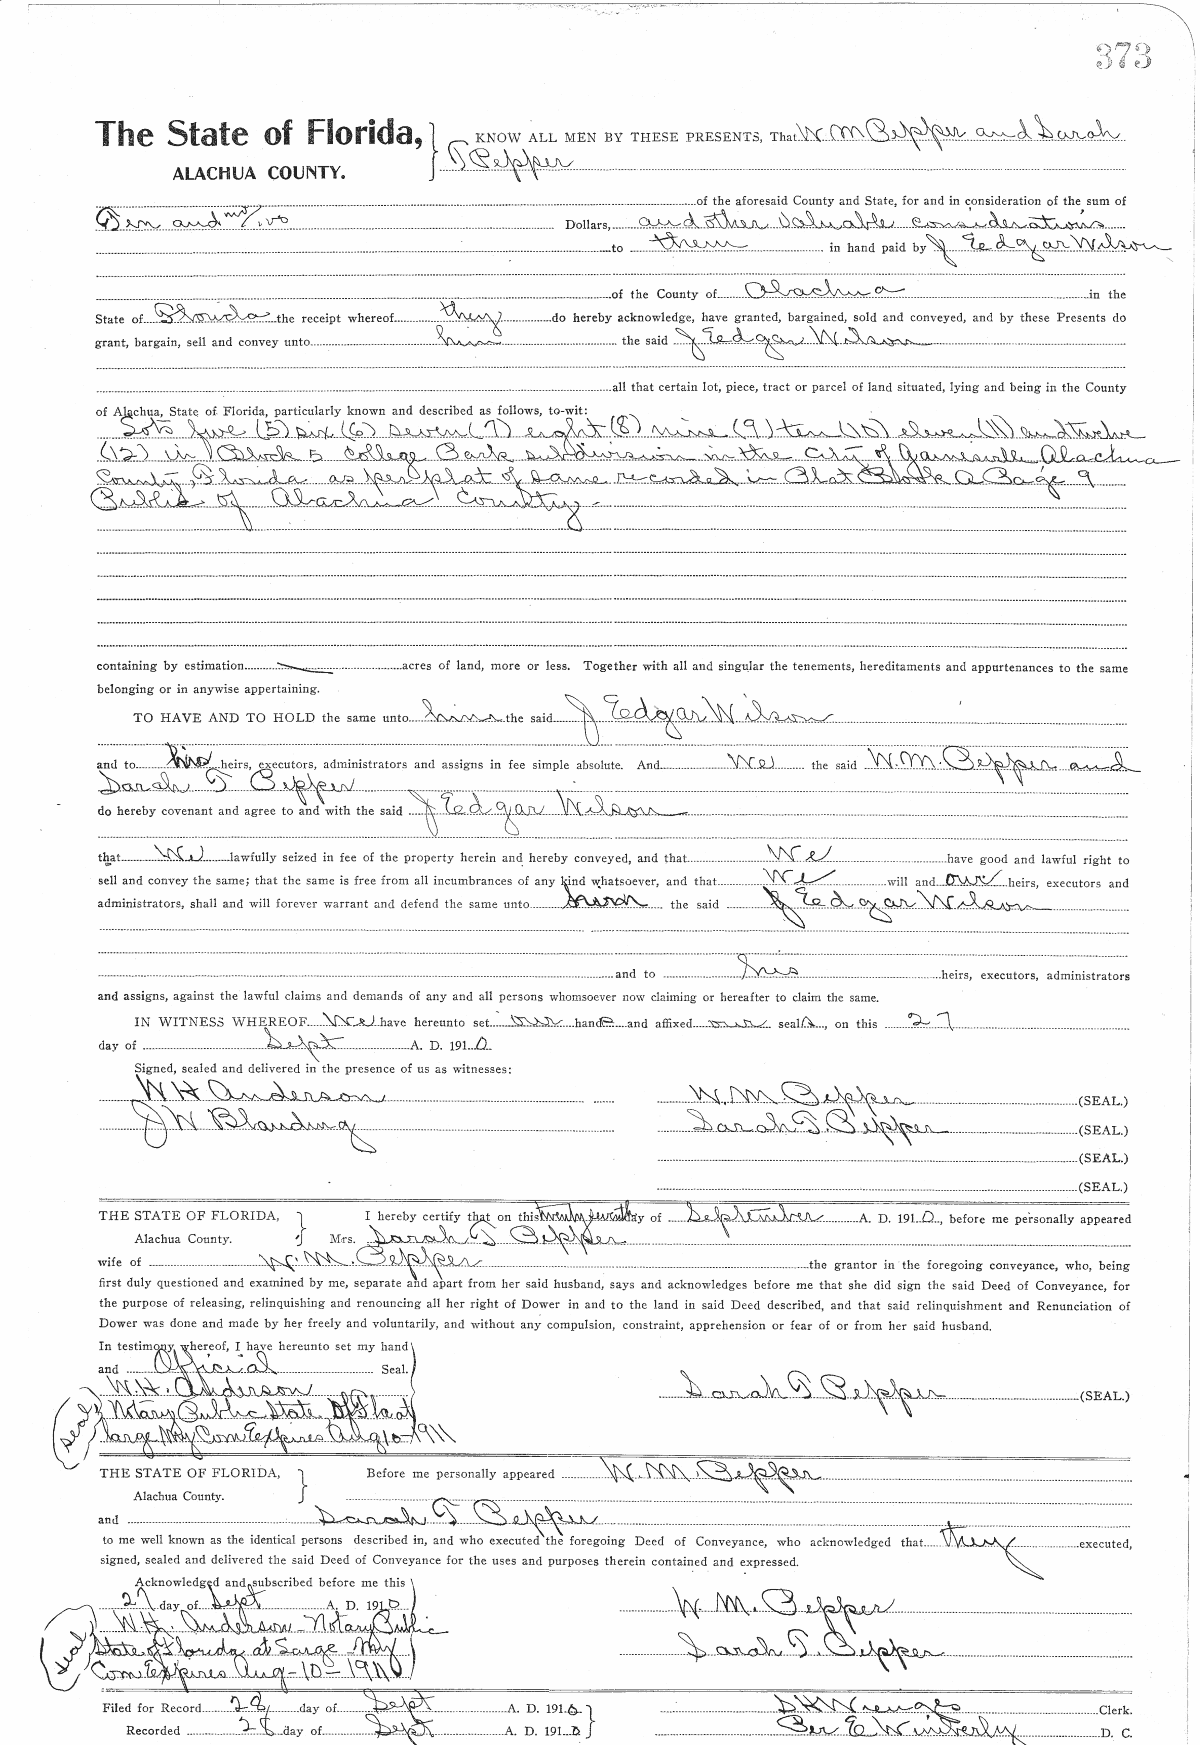 373
The State of Florida, KNOW ALL MEN BY THESE PRESENTS, That W. M Pepper and Sarah
ALACHUA COUNTY. T Pepper
of the aforesaid County and State, for and in consideration of the sum of
Ten and no/100 Dollars, and other valuable considerations
to them in hand paid by J Edgar Wilson
of the County of Alachua in the
State of Florida the receipt whereof they do hereby acknowledge, have granted, bargained, sold and conveyed, and by these Presents do
grant, bargain, sell and convey unto him the said J Edgar Wilson
all that certain lot, piece, tract or parcel of land situated, lying and being in the County
of Alachua, State of Florida, particularly known and described as follows, to-wit:
Lots five (5) six (6) seven (7) eight (8) nine (9) ten (10) eleven (11) and twelve
(12) in Block 5 College Park subdivision in the City of Gainesville Alachua
County, Florida as per plat of same recorded in Plat Book A Page 9
Public of Alachua County -
containing by estimation acres of land, more or less. Together with all and singular the tenements, hereditaments and appurtenances to the same
belonging or in anywise appertaining.
TO HAVE AND TO HOLD the same unto him the said J Edgar Wilson
and to his heirs, executors, administrators and assigns in fee simple absolute. And We the said W. M. Pepper and
Sarah T Pepper
do hereby covenant and agree to and with the said J Edgar Wilson
that We lawfully seized in fee of the property herein and hereby conveyed, and that We have good and lawful right to
sell and convey the same; that the same is free from all incumbrances of any kind whatsoever, and that We will and our heirs, executors and
administrators, shall and will forever warrant and defend the same unto the said J Edgar Wilson
and to his heirs, executors, administrators
and assigns, against the lawful claims and demands of any and all persons whomsoever now claiming or hereafter to claim the same.
IN WITNESS WHEREOF We have hereunto set our hands and affixed our seals, on this 27
day of Sept A. D. 1910
Signed, sealed and delivered in the presence of us as witnesses:
W H Anderson W. M Pepper (SEAL.)
J W Blanding Sarah T. Pepper (SEAL.)
(SEAL.)
(SEAL.)
THE STATE OF FLORIDA, I hereby certify that on this twenty seventh day of September A. D. 1910, before me personally appeared
Alachua County. Mrs. Sarah T Pepper
wife of W. M. Pepper the grantor in the foregoing conveyance, who, being
first duly questioned and examined by me, separate and apart from her said husband, says and acknowledges before me that she did sign the said Deed of Conveyance, for
the purpose of releasing, relinquishing and renouncing all her right of Dower in and to the land in said Deed described, and that said relinquishment and Renunciation of
Dower was done and made by her freely and voluntarily, and without any compulsion, constraint, apprehension or fear of or from her said husband.
In testimony whereof, I have hereunto set my hand
and Official Seal.
W. H. Anderson Sarah T Pepper (SEAL.)
(seal) Notary Public State Of Fla at
large My Com Expires Aug 10-1911
THE STATE OF FLORIDA, Before me personally appeared W. M. Pepper
Alachua County.
and Sarah T Pepper
to me well known as the identical persons described in, and who executed the foregoing Deed of Conveyance, who acknowledged that they executed,
signed, sealed and delivered the said Deed of Conveyance for the uses and purposes therein contained and expressed.
Acknowledged and subscribed before me this
27 day of Sept A. D. 1910 W. M. Pepper
W. H. Anderson - Notary Public
(seal) State of Florida at Large My Sarah T. Pepper
Com Expires Aug-10-1911
Filed for Record 28 day of Sept A. D. 1910 Clerk.
Recorded 28 day of Sept A. D. 1910 Per E Wimberly D. C.